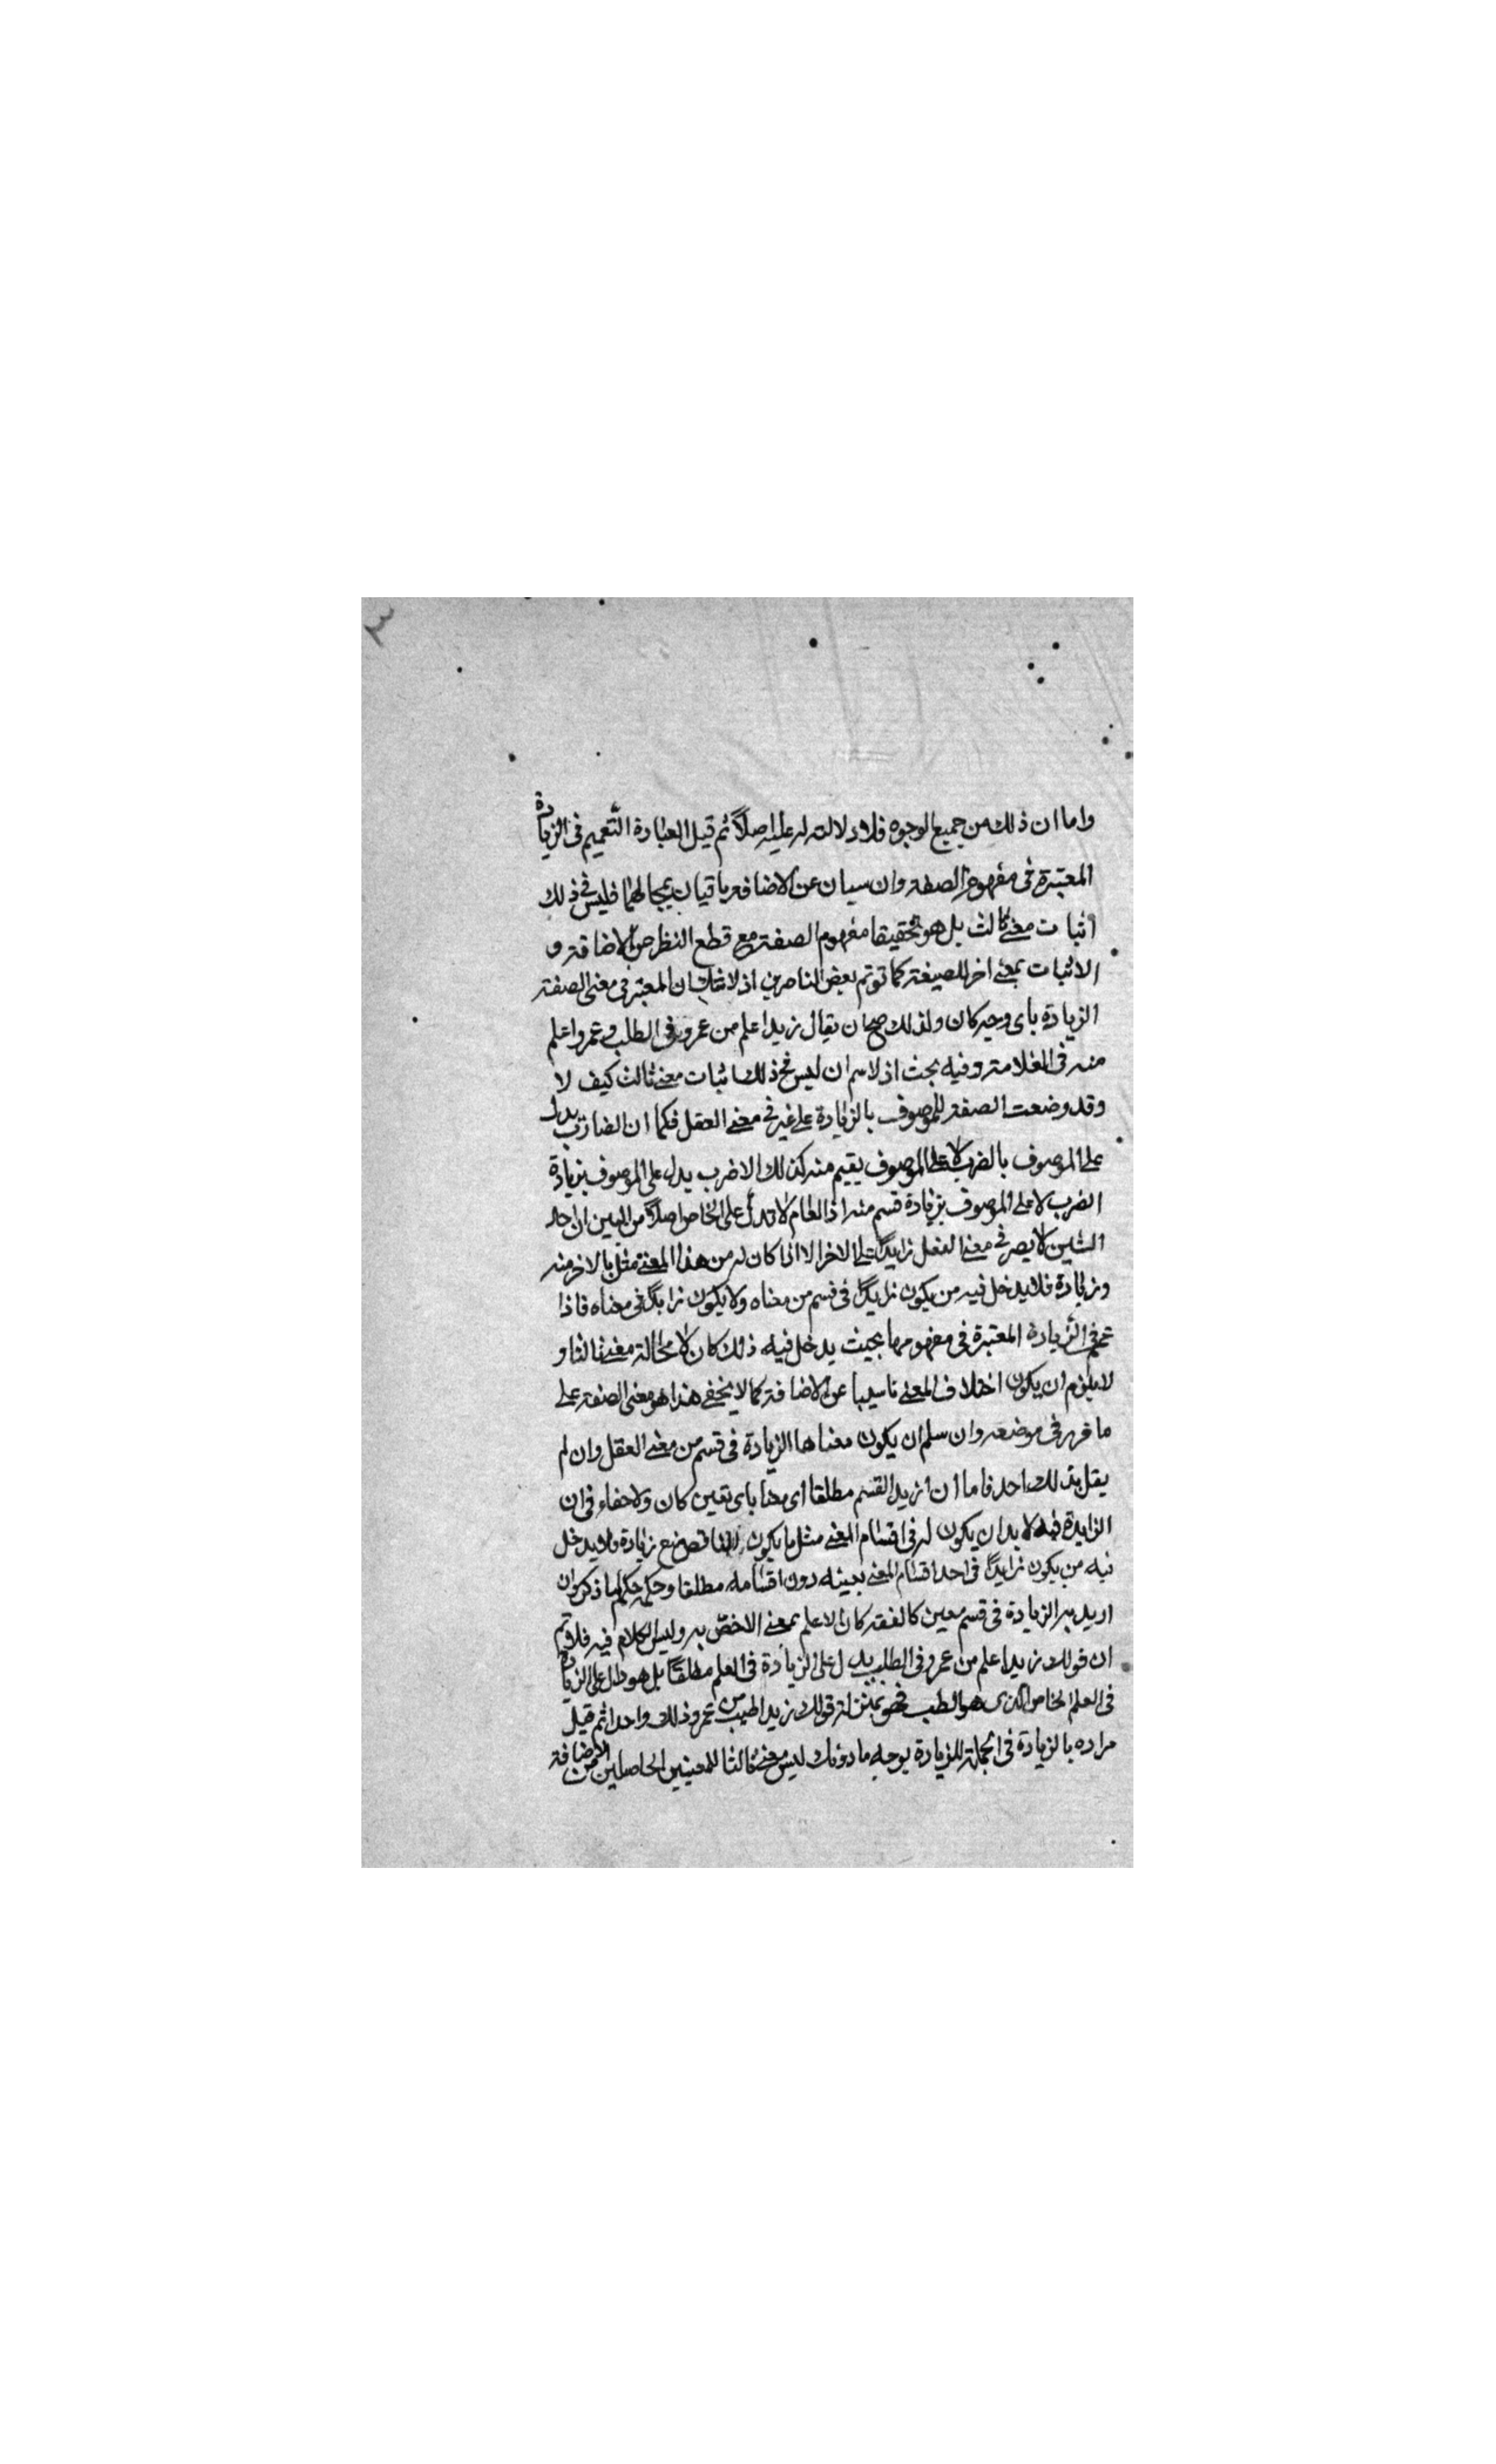 ٣
واما ان ذلك من جميع الوجوه فلا دلالة له عليه اصلاً ثم قيل العبارة التعميم فى الزيادة
المعتبرة فى مفهوم الصفة وان سيان عن الاضافة باقيان بحالهما فليس فى ذلك
اثبات معنى ثالث بل هو تحقيقا مفهوم الصفة مع قطع النظر عن الاضافة و
الاثبات بمعنى اخر للصيغة كما توهم بعض الناصرين اذ لا شك ان المعتبر فى معنى الصفة
الزيادة باى وجه كان ولذلك صح ان يقال زيد اعلم من عمرو فى الطلب وعمرو اعلم
منه فى الغلامة وفيه بحث اذ لا سم ان ليس فى ذلك اثبات معنى ثالث كيف لا
وقد وضعت الصفة للموصوف بالزيادة على غيره فى معنى العقل فكما ان الضارب يدل
على الموصوف بالضرب لا على الموصوف بقسم منه كذلك الاضرب يدل على الموصوف بزيادة
الضرب لا على الموصوف بزيادة قسم منه اذ العام لا تدل على الخاص اصلاً من البين ان حال
الشين لا يصر فى معنى الفعل زايداً على الاخر الا اذا كان له من هذا المعنى مثل ما لاخر منه
وزيادة فلا يدخل فيه من يكون زايداً فى قسم من معناه ولا يكون زايداً فى معناه فاذا
عمم فى الزيادة المعتبرة فى مفهومها بحيث يدخل فيه ذلك كان لا محالة معنى ثالثا و
لا يلزم ان يكون اختلاف المعنى ناسيا عن الاضافة كما لا يخفى هذا هو معنى الصفة على
ما قرر فى موضعه وان سلم ان يكون معناها الزيادة فى قسم من معنى العقل وان لم
يقل بذلك احد فاما ان ازيد القسم مطلقا اى معنا باى تعين كان ولا خفاء فى ان
الزايدة فيه لا بد ان يكون له فى اقسام المعنى مثل ما يكون للناقص مع زيادة ولا يدخل
فيه من يكون زايداً فى احد اقسام المعنى بعينه دون اقسامه مطلقا وحكمه حكم ما ذكر وان
اريد به الزيادة فى قسم معين كالفقه كان الاعلم بمعنى الاخص به وليس الكلام فيه فلا وتم
ان قولك زيد اعلم من عمرو فى الطلب يدل على الزيادة فى العلم مطلقاً بل هو دال على الزيادة
فى العلم الخاص الذى هو الطب فهو بمنزلة قولك زيد اطيب من عمرو وذلك واحد ثم قيل
مراده بالزيادة فى الجملة للزيادة بوجه ما دونك ليس معنى ثالثا للمعنيين الحاصلين من الاضافة